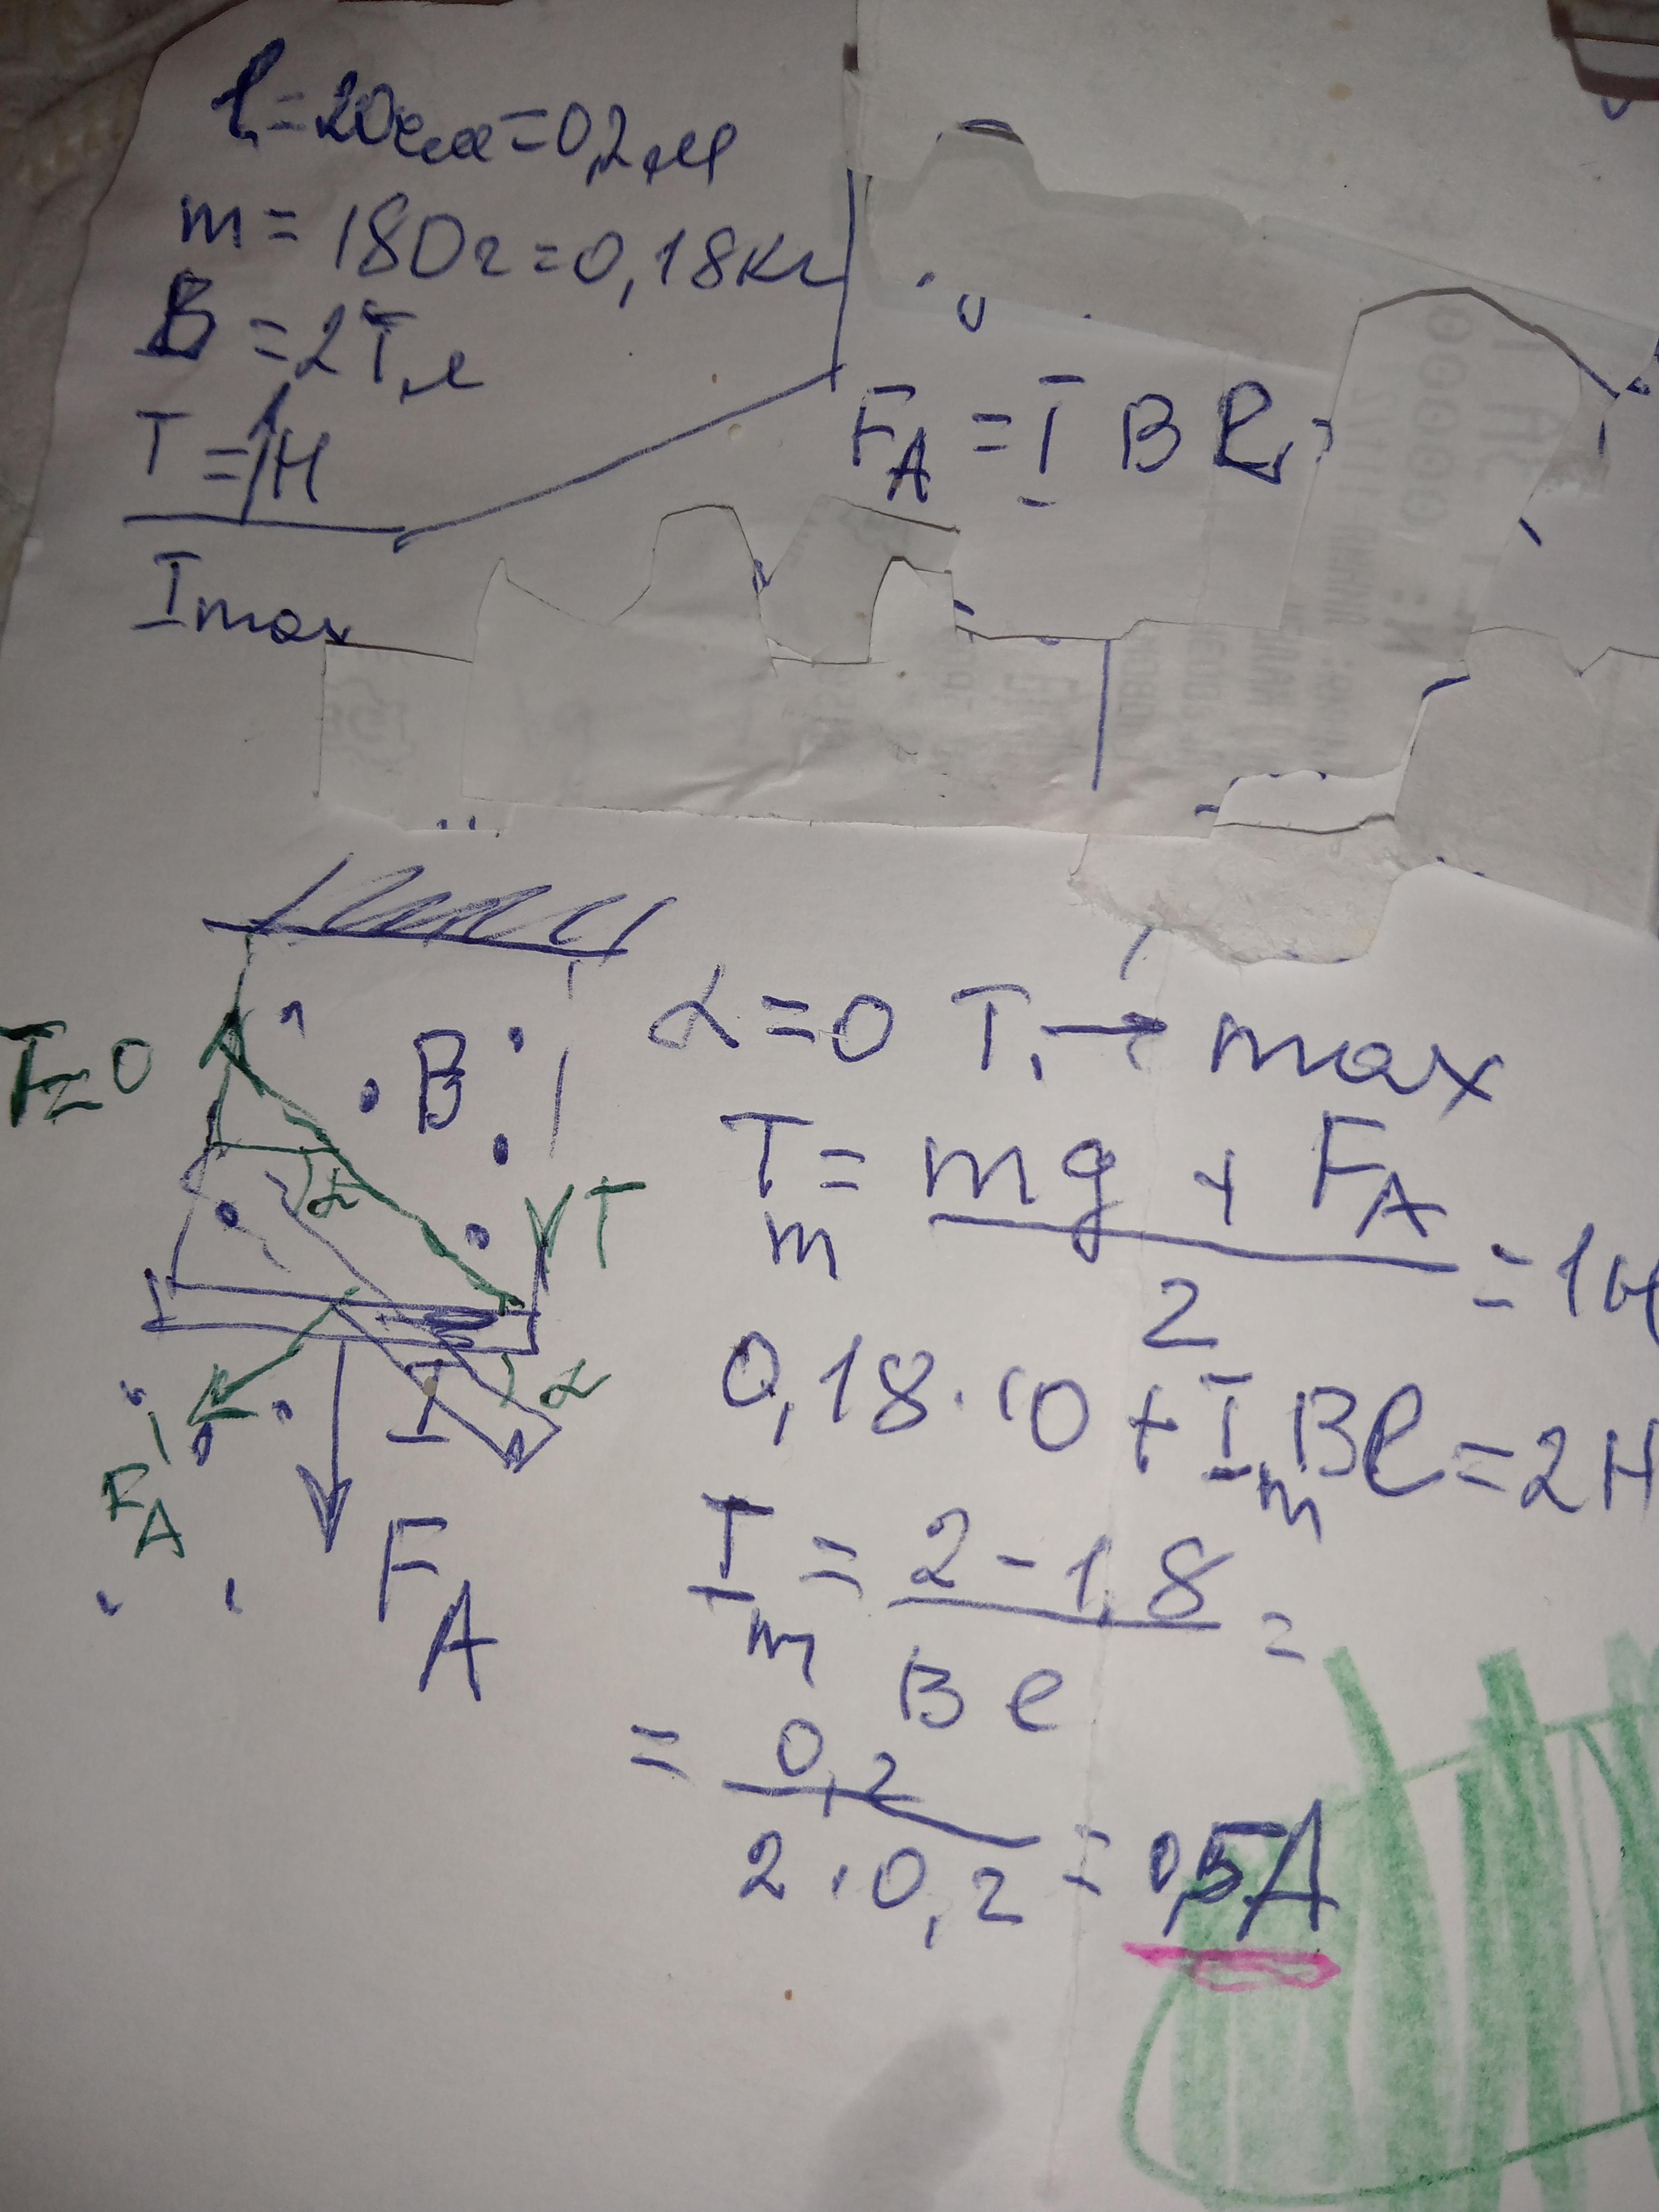 l = 20см = 0,2м
m = 180г = 0,18кг
B = 2Тл
T = 1Н
Imax
FA = I B l
T=0
B
α
T
α
I
FA
FA
α = 0 T → max
Tm = (mg + FA)/2 = 1Н
0,18·10 + ImBl = 2Н
Im = (2 - 1,8)/(Bl) =
= 0,2/(2·0,2) = 0,5A